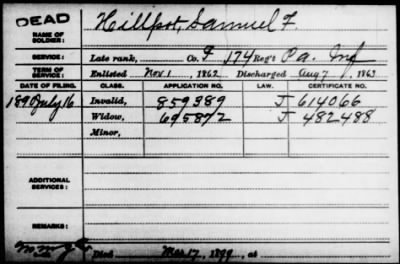 DEAD
NAME OF SOLDIER:
Hillpot, Samuel F.
SERVICE: Late rank, Co. F 174 Reg't Pa. Inf
TERM OF SERVICE: Enlisted Nov. 1, 1862 Discharged Aug 7, 1863
DATE OF FILING. CLASS. APPLICATION NO. LAW. CERTIFICATE NO.
1890 July 16 Invalid, 859389 J 614066
Widow, 695872 J 482488
Minor,
ADDITIONAL SERVICES:
REMARKS:
Died Mar 17, 1899, at